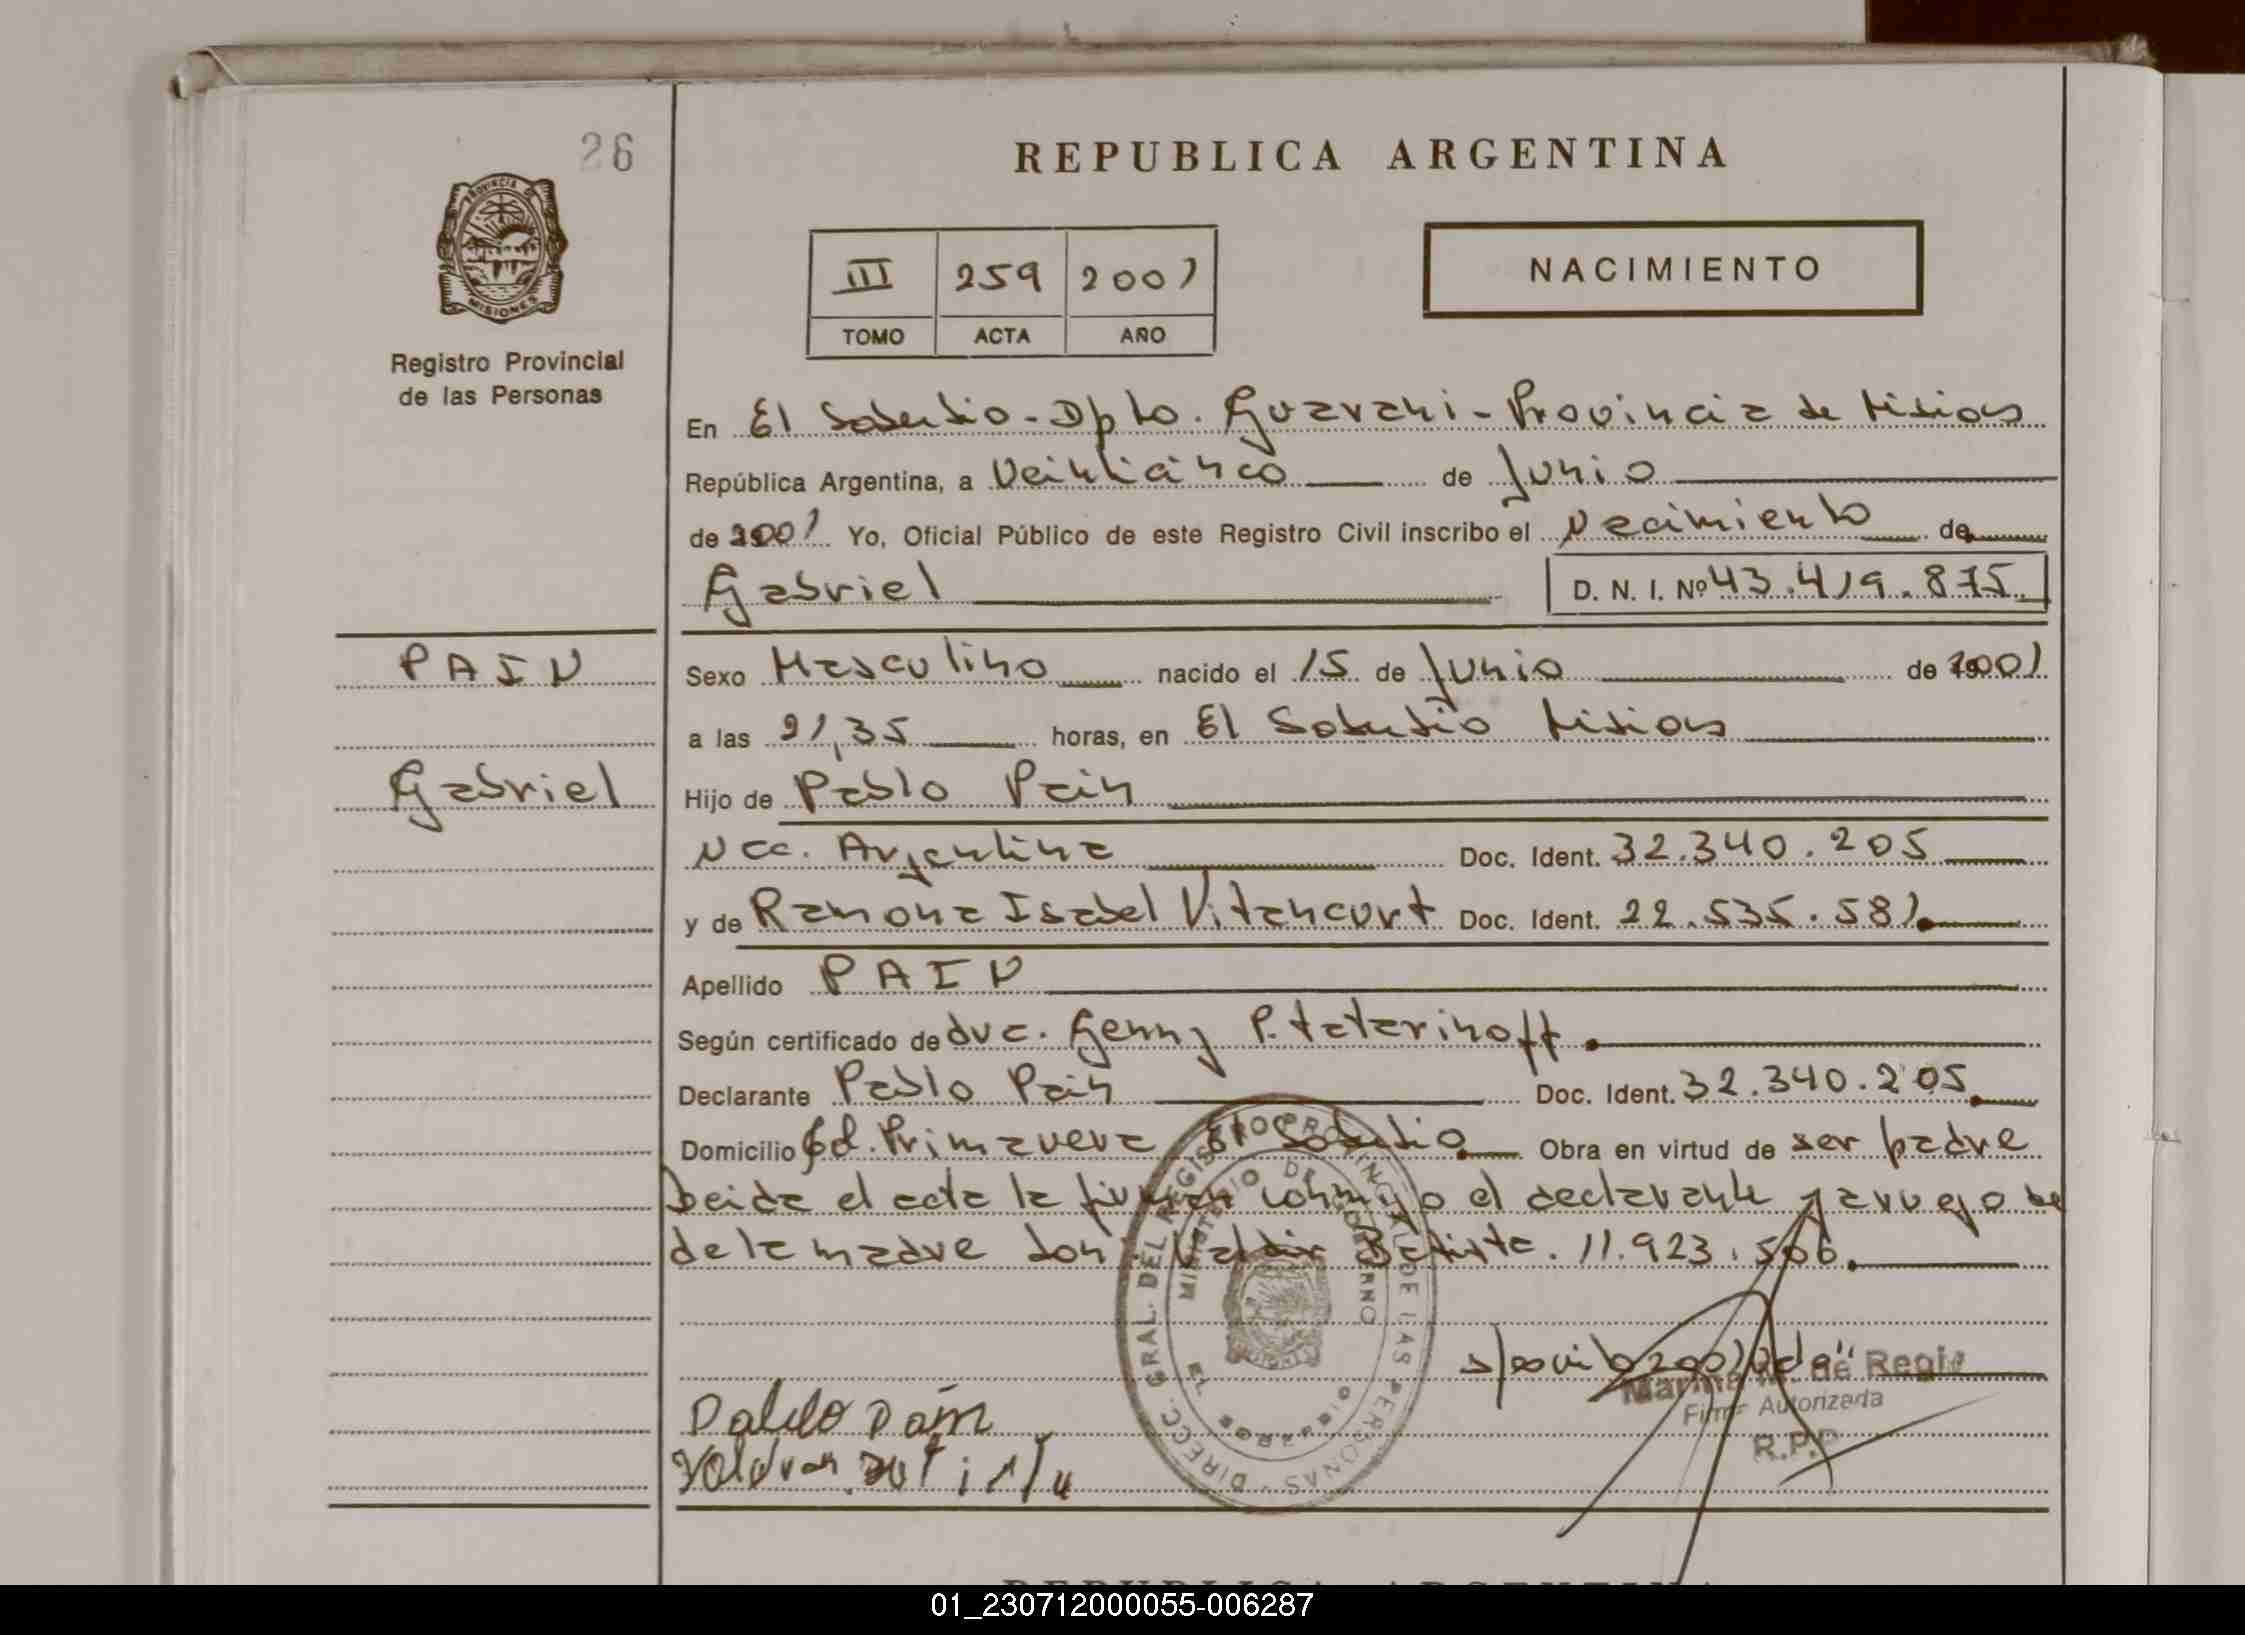 26
REPUBLICA ARGENTINA
PROVINCIA DE
MISIONES
Registro Provincial
de las Personas
III 259 2001
TOMO ACTA AÑO
NACIMIENTO
En El Soberbio - Dpto. Guarani - Provincia de Misiones
República Argentina, a Veinticinco de Junio
de 2001 Yo, Oficial Público de este Registro Civil inscribo el Nacimiento de
Gabriel D. N. I. Nº 43.419.875
PAIN
Sexo Masculino nacido el 15 de Junio de 2001
a las 21,35 horas, en El Soberbio Misiones
Gabriel
Hijo de Pablo Pain
Nac. Argentina Doc. Ident. 32.340.205
y de Ramona Isabel Vitancurt Doc. Ident. 22.535.581
Apellido PAIN
Según certificado de dra. Genny P. tatarinoff
Declarante Pablo Pain Doc. Ident. 32.340.205
Domicilio Cd. Primavera El Soberbio Obra en virtud de ser padre
Leida el acta la firman conmigo el declarante y a ruego
de la madre don Valdir Batista. 11.923.506
DIRECC. GRAL. DEL REGISTRO PROVINCIAL DE LAS PERSONAS
MINISTERIO DE GOBIERNO
EL SOBERBIO
s/ 2001 Vale"
de Regis
Firma Autorizada
R.P.P
Pablo Pain
01_230712000055-006287